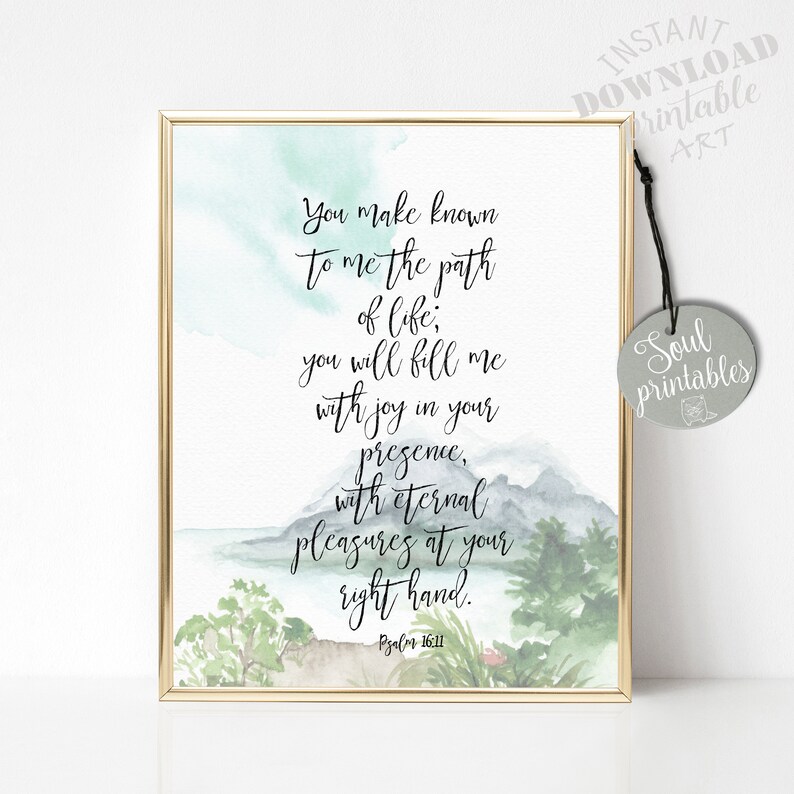 INSTANT
DOWNLOAD
printable
ART
You make known
to me the path
of life;
you will fill me
with joy in your
presence,
with eternal
pleasures at your
right hand.
Psalm 16:11
Soul
printables